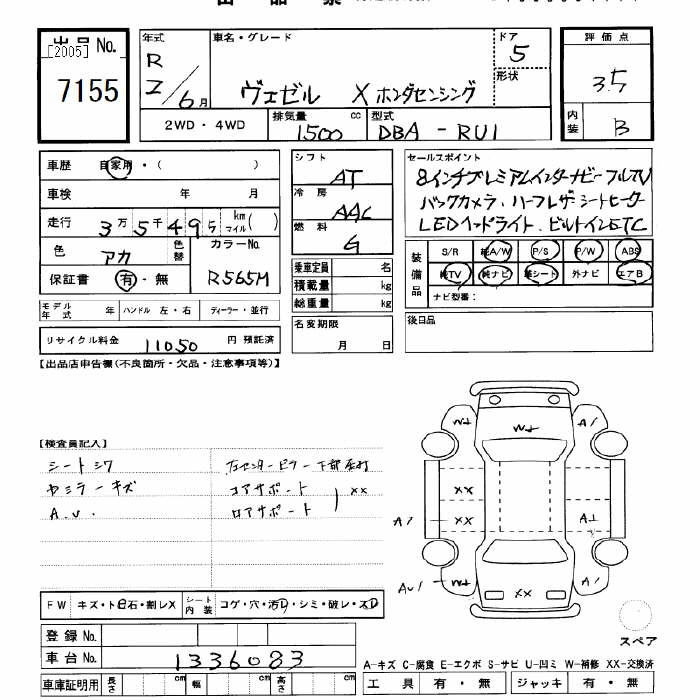 出品No.
[2005]
7155
年式
R
2/6月
車名・グレード
ヴェゼル X ホンダセンシング
ドア
5
形状
評価点
3.5
内装
B
2WD・4WD
排気量
1500 cc
型式
DBA-RU1
車歴 自家用・( )
車検 年 月
走行 3万5千495 km マイル( )
色 アカ
色替
カラーNo.
R565M
保証書 有・無
モデル年式 年
ハンドル 左・右
ディーラー・並行
リサイクル料金 11050 円 預託済
シフト
AT
冷房
AAC
燃料
G
乗車定員 名
積載量 kg
総重量 kg
名変期限
月 日
セールスポイント
8インチプレミアムインターナビーフルTV
バックカメラ、ハーフレザーシートヒーター
LEDヘッドライト、ビルトインETC
装備品
S/R 純A/W P/S P/W ABS
純TV 純ナビ 革シート 外ナビ エアB
ナビ型番:
後日品
【出品店申告欄(不良箇所・欠品・注意事項等)】
【検査員記入】
シートシワ
ヤミラーキズ
A.U.
左センターピラー下部
コアサポート
ロアサポート
XX
W1
A1
W1
XX
XX
A1
A1
AU1
W1
XX
A1
スペア
FW キズ・トビ石・割レX
シート内装 コゲ・穴・汚レ・シミ・破レ・スレ
登録No.
車台No. 1336083
車庫証明用 長さ cm 幅 cm 高さ cm
A-キズ C-腐食 E-エクボ S-サビ U-凹ミ W-補修 XX-交換済
工具 有・無 ジャッキ 有・無